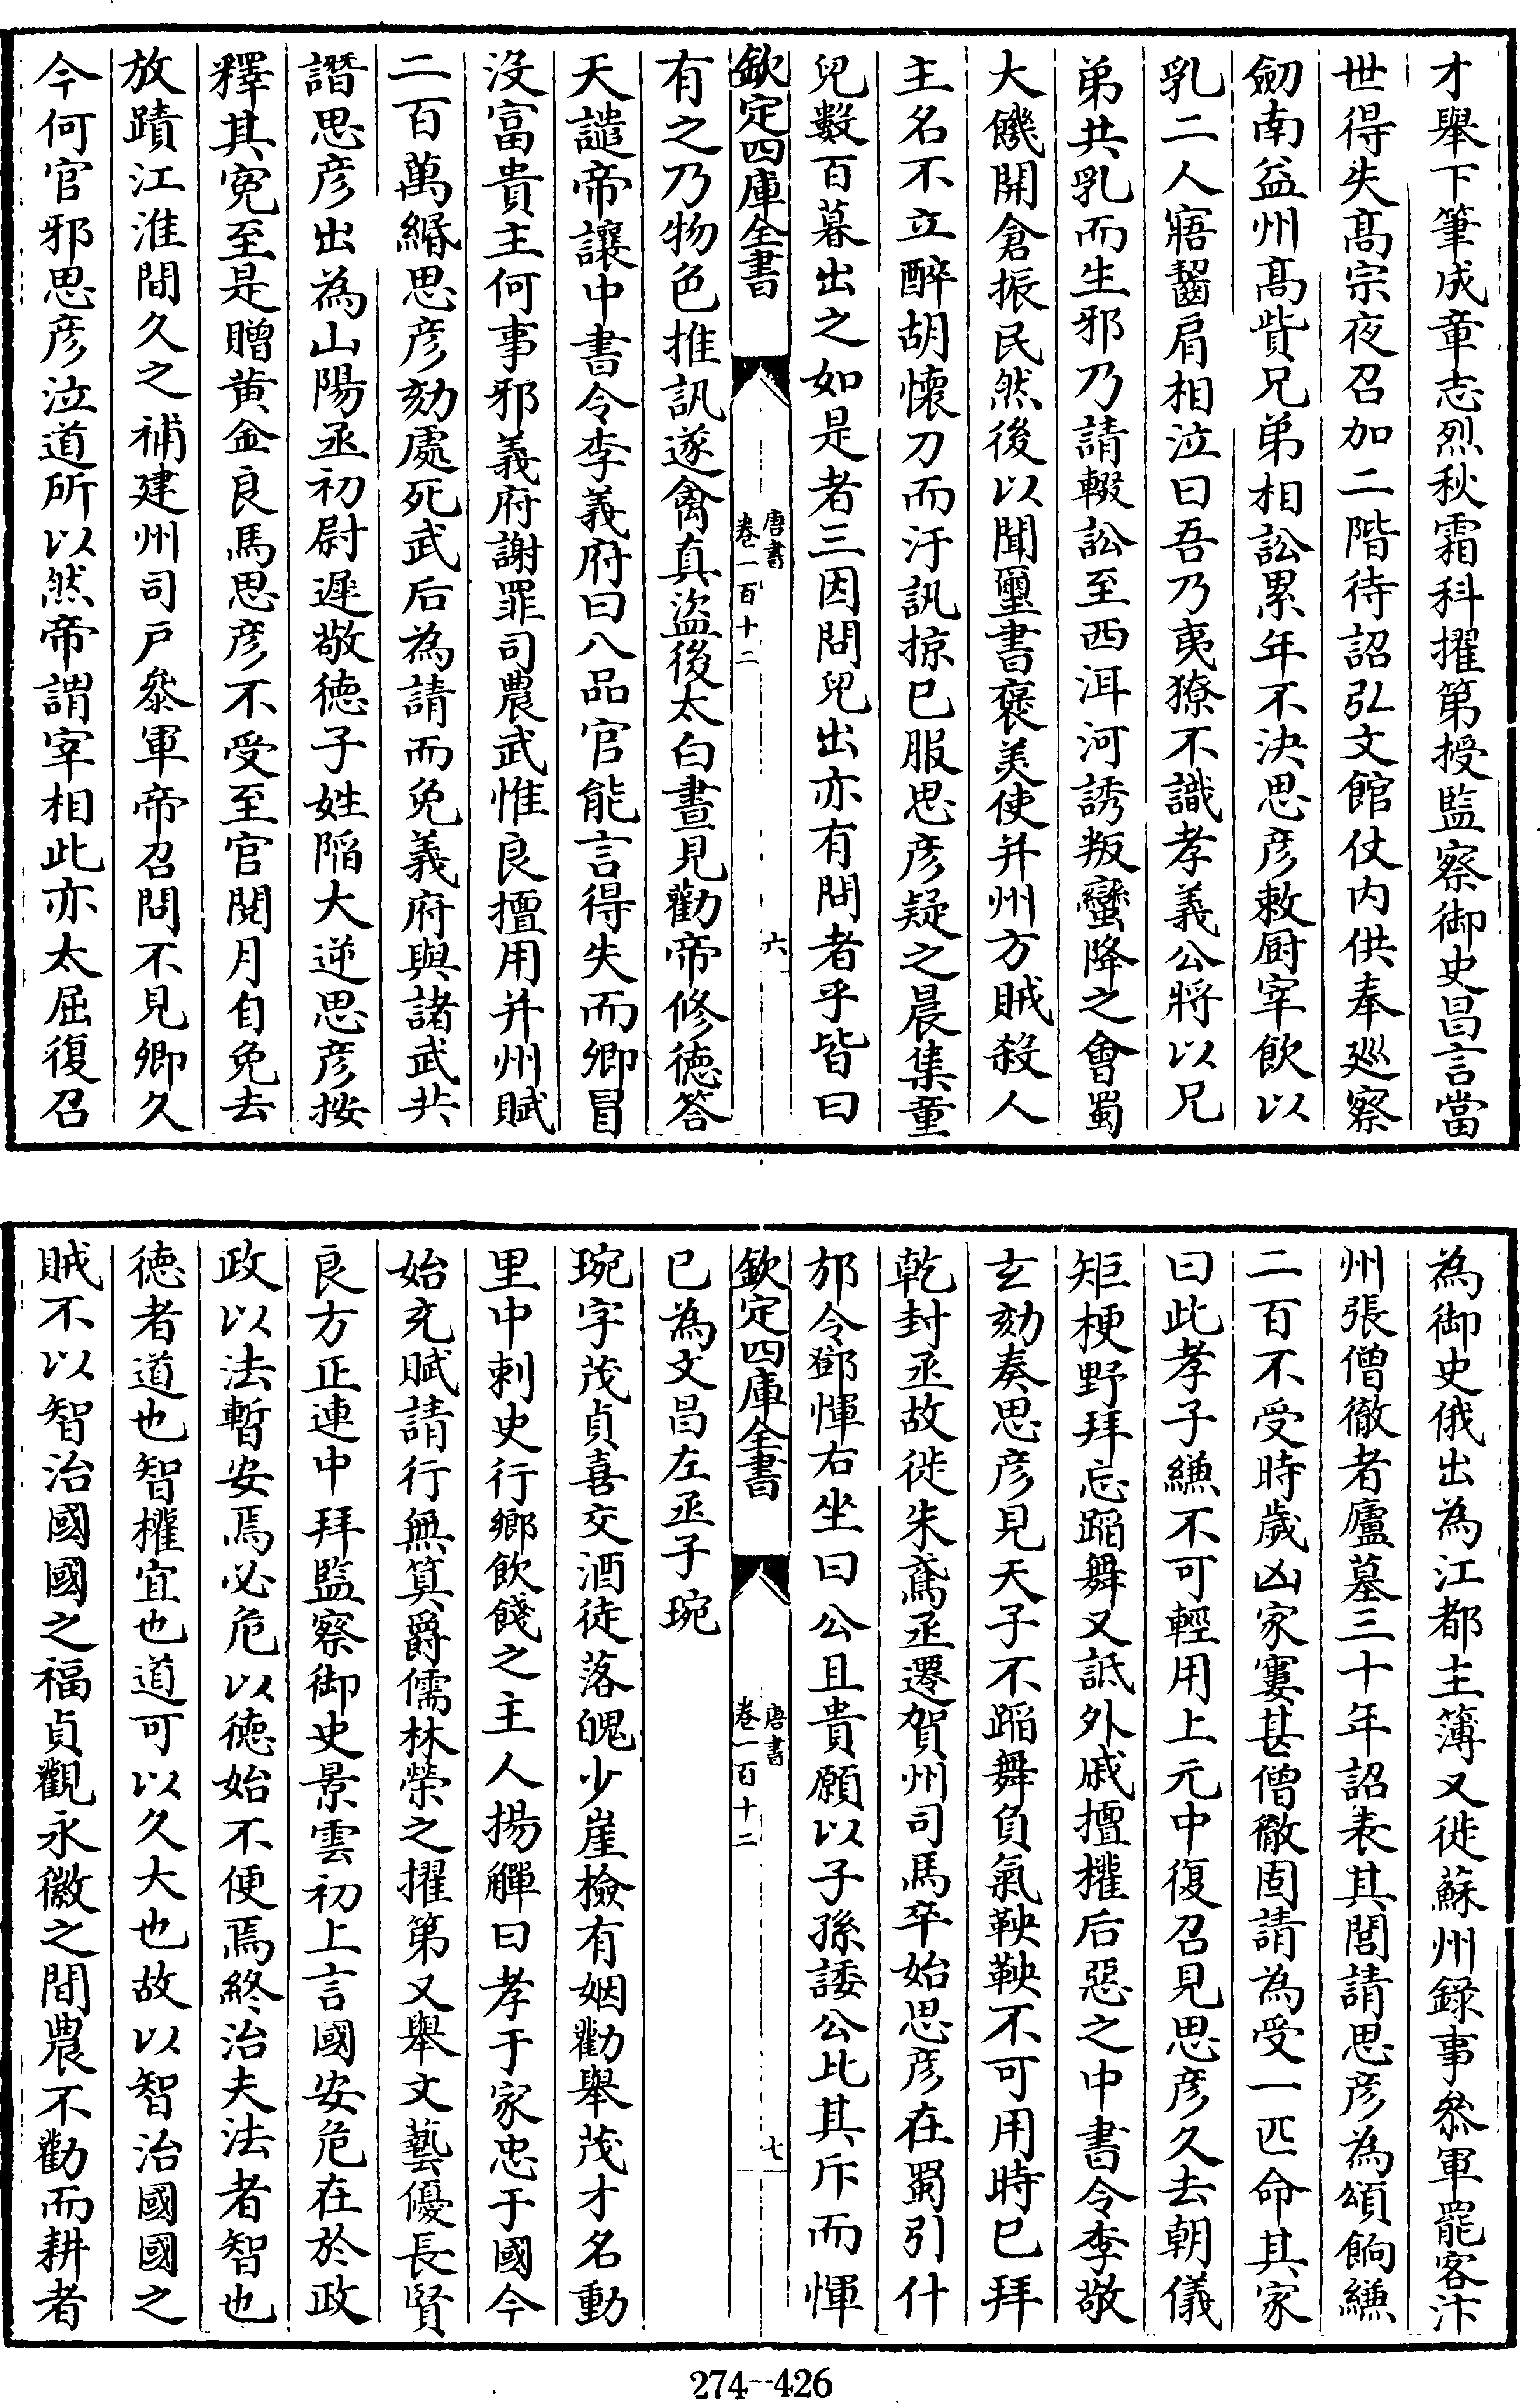 才舉下筆成章志烈秋霜科擢第授監察御史昌言當
世得失髙宗夜召加二階待詔弘文館仗内供奉廵察
劒南益州髙貲兄弟相訟累年不決思彦敕厨宰飲以
乳二人寤齧肩相泣曰吾乃夷獠不識孝義公將以兄
弟共乳而生邪乃請輟訟至西洱河誘叛蠻降之會蜀
大饑開倉振民然後以聞璽書褒美使并州方賊殺人
主名不立醉胡懷刀而汙訊掠已服思彦疑之晨集童
兒數百暮出之如是者三因問兒出亦有問者乎皆曰
欽定四庫全書
唐書
卷一百十二
六
有之乃物色推訊遂禽真盜後太白晝見勸帝修徳答
天譴帝讓中書令李義府曰八品官能言得失而卿冒
没富貴主何事邪義府謝罪司農武惟良擅用并州賦
二百萬緡思彦劾處死武后為請而免義府與諸武共
譖思彦出為山陽丞初尉遲敬徳子姓陷大逆思彦按
釋其寃至是贈黄金良馬思彦不受至官閱月自免去
放蹟江淮間久之補建州司户叅軍帝召問不見卿久
今何官邪思彦泣道所以然帝謂宰相此亦太屈復召
為御史俄出為江都主簿又徙蘇州録事叅軍罷客汴
州張僧徹者廬墓三十年詔表其閭請思彦為頌餉縑
二百不受時歲凶家窶甚僧徹固請為受一匹命其家
曰此孝子縑不可輕用上元中復召見思彦久去朝儀
矩梗野拜忘蹈舞又詆外戚擅權后惡之中書令李敬
玄劾奏思彦見天子不蹈舞負氣鞅鞅不可用時已拜
乾封丞故徙朱鳶丞遷賀州司馬卒始思彦在蜀引什
邡令鄧惲右坐曰公且貴願以子孫諉公比其斥而惲
欽定四庫全書
唐書
卷一百十二
七
已為文昌左丞子琬
琬字茂貞喜交酒徒落魄少崖檢有姻勸舉茂才名動
里中刺史行鄉飲餞之主人揚觶曰孝于家忠于國今
始充賦請行無算爵儒林榮之擢第又舉文藝優長賢
良方正連中拜監察御史景雲初上言國安危在於政
政以法暫安焉必危以徳始不便焉終治夫法者智也
徳者道也智權宜也道可以久大也故以智治國國之
賊不以智治國國之福貞觀永徽之間農不勸而耕者
274--426